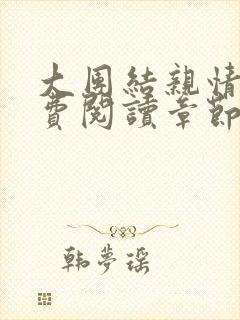 大團結親情
費閱讀章節
韩夢瑶